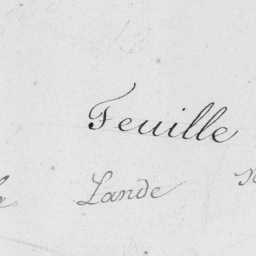 Feuille
Lande